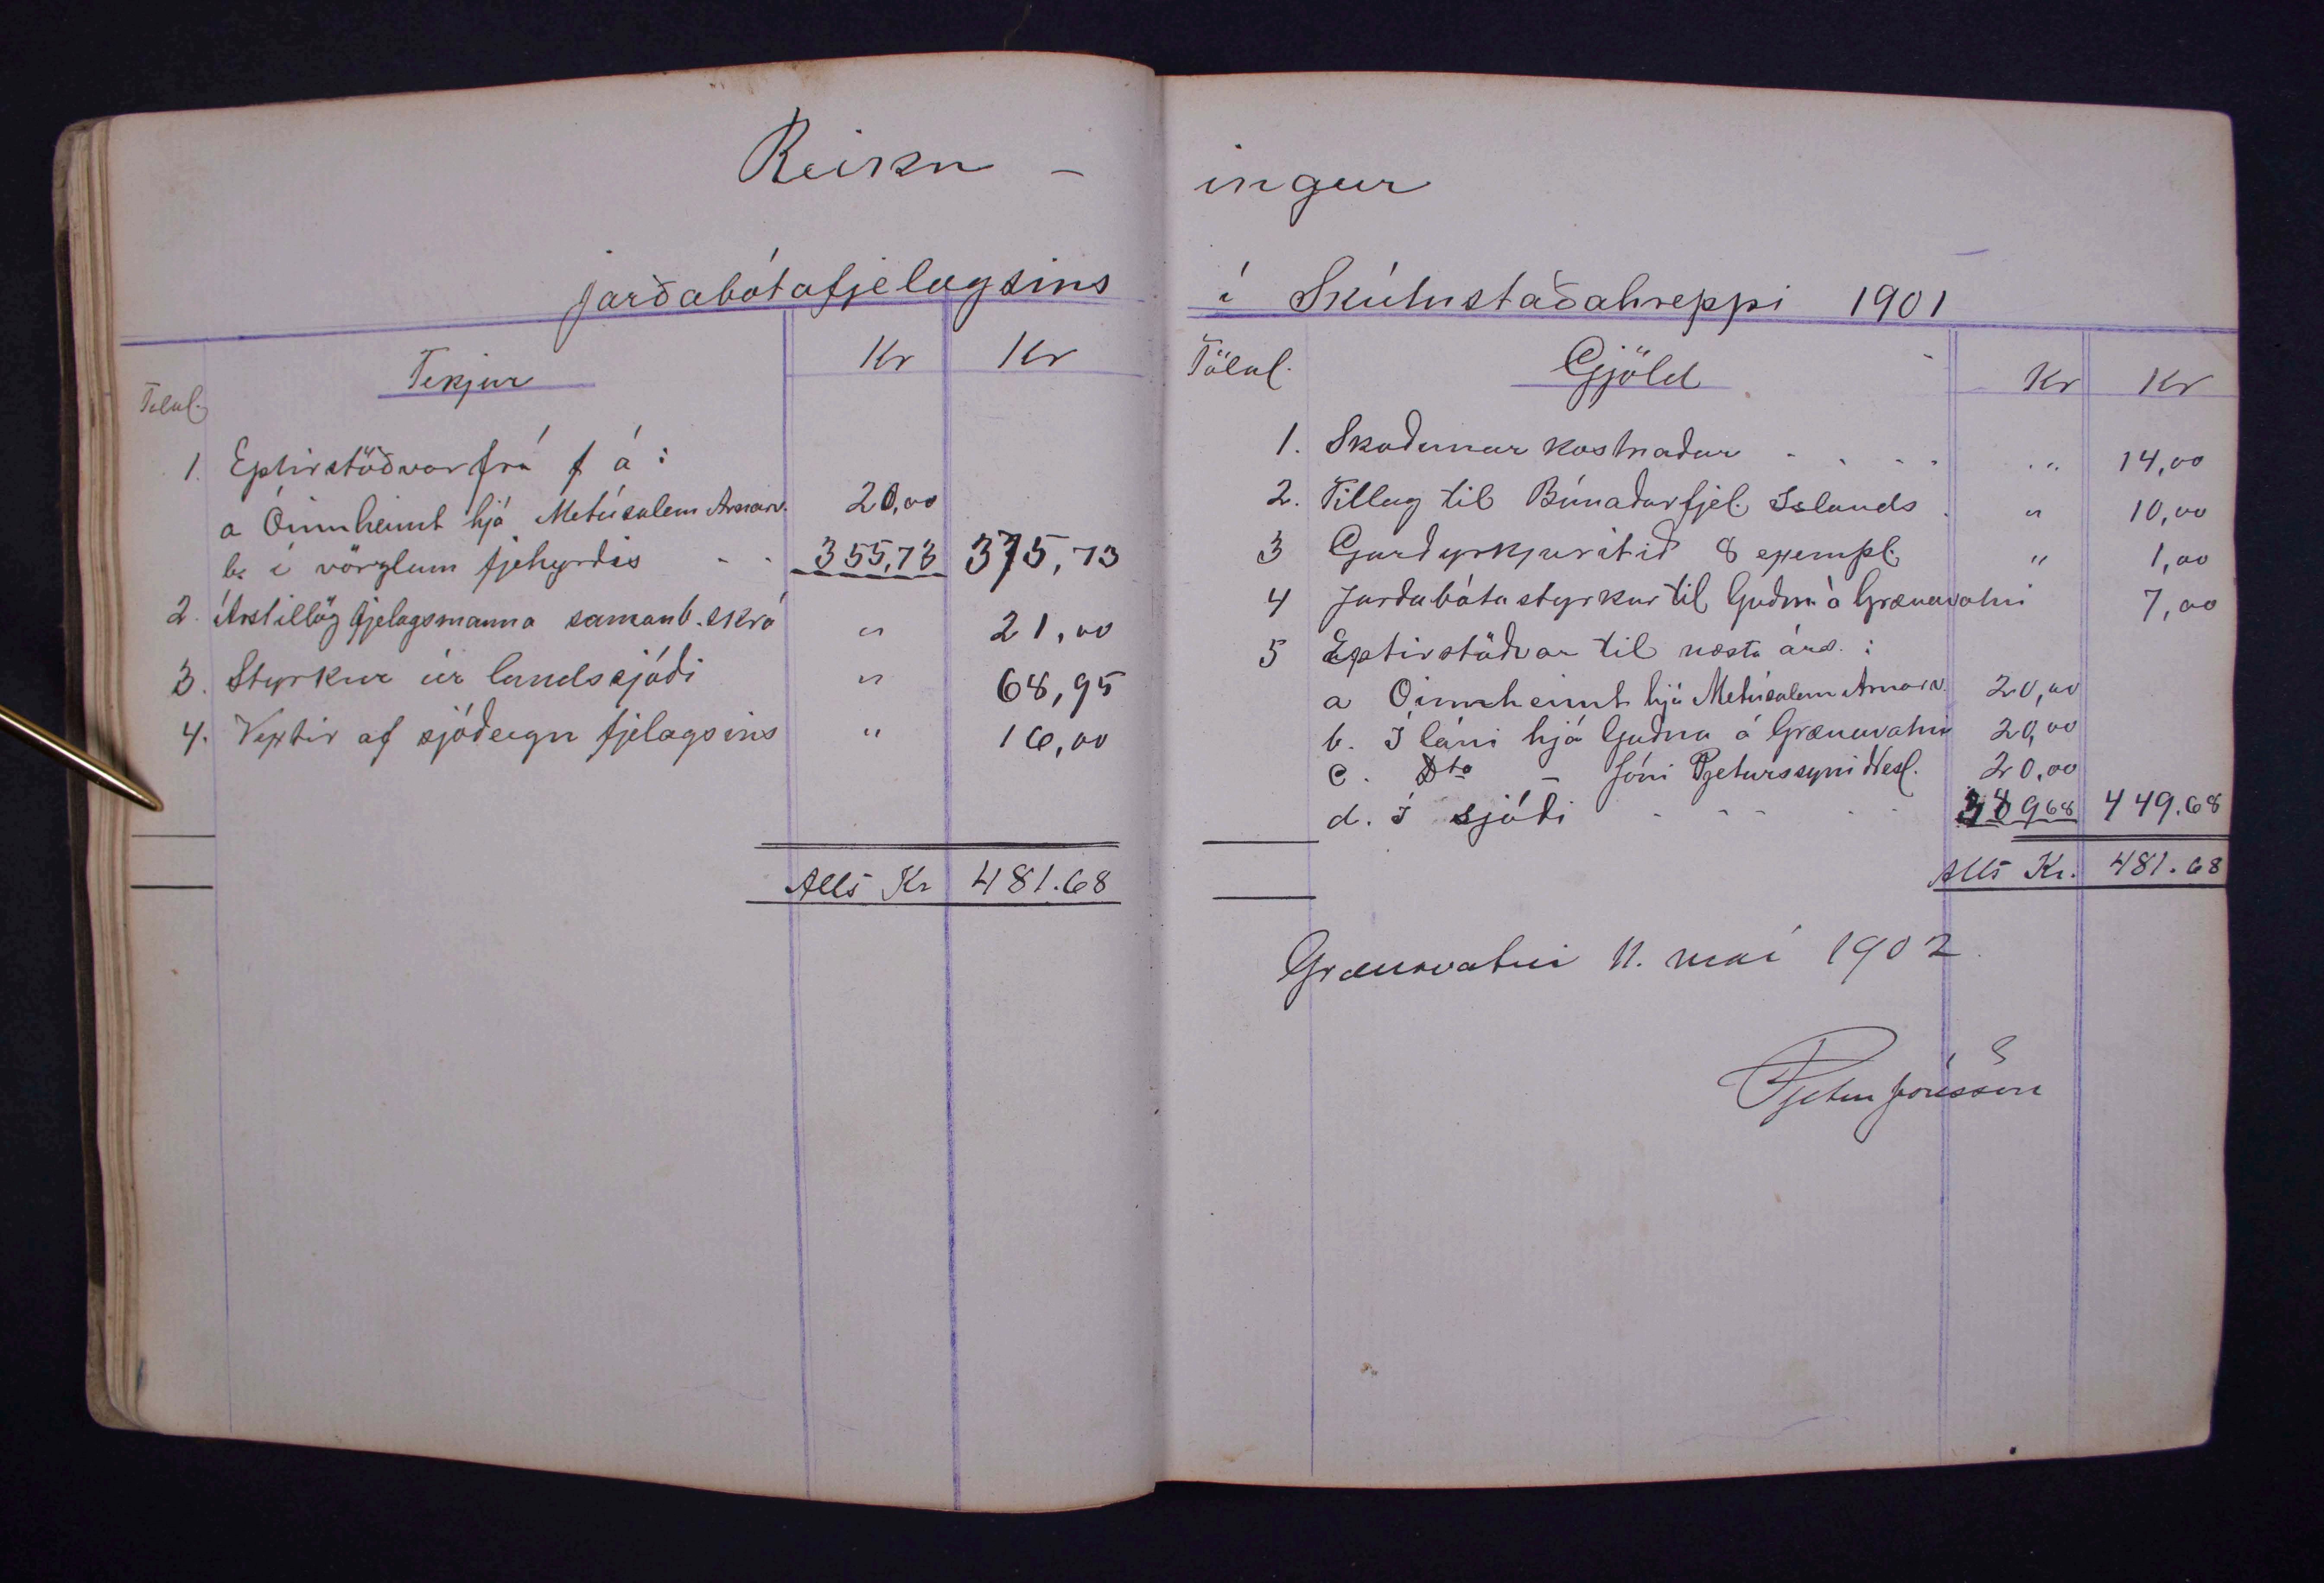 Reikn -
jarðabótafjelagsins
Tölul. Tekjur Kr Kr
1. Eptirstöðvar frá f á :
a Óinnheimt hjá Metúsalem Arnarv. 20,00
b. í vörzlum fjehyrðis - - 355,73 375,73
2. Árstillög fjelagsmanna samanb. skrá " 21,00
3. Styrkur úr landssjóði " 68,95
4. Vextir af sjóðeign fjelagsins " 16,00
Alls Kr 481.68
ingur
í Skútustaðahreppi 1901
Tölul. Gjöld Kr Kr
1. Skoðunar kostnaður . . . . " 14,00
2. Tillag til Búnaðarfjel. Islands . " 10,00
3 Garðyrkjuritið 8 exempl. " 1,00
4 Jarðabótastyrkur til Guðna á Grænavatni 7,00
5 Eptirstöðvar til næsta árs. :
a Óinnheimt hjá Metúsalem Arnarv. 20,00
b. Í láni hjá Guðna á Grænavatni 20,00
c. Dto - Jóni Pjeturssyni 20,00
d. Í sjóði - - - - 38968 449.68
Alls Kr. 481.68
Grænavatni 11. maí 1902.
Pjetur Jónsson